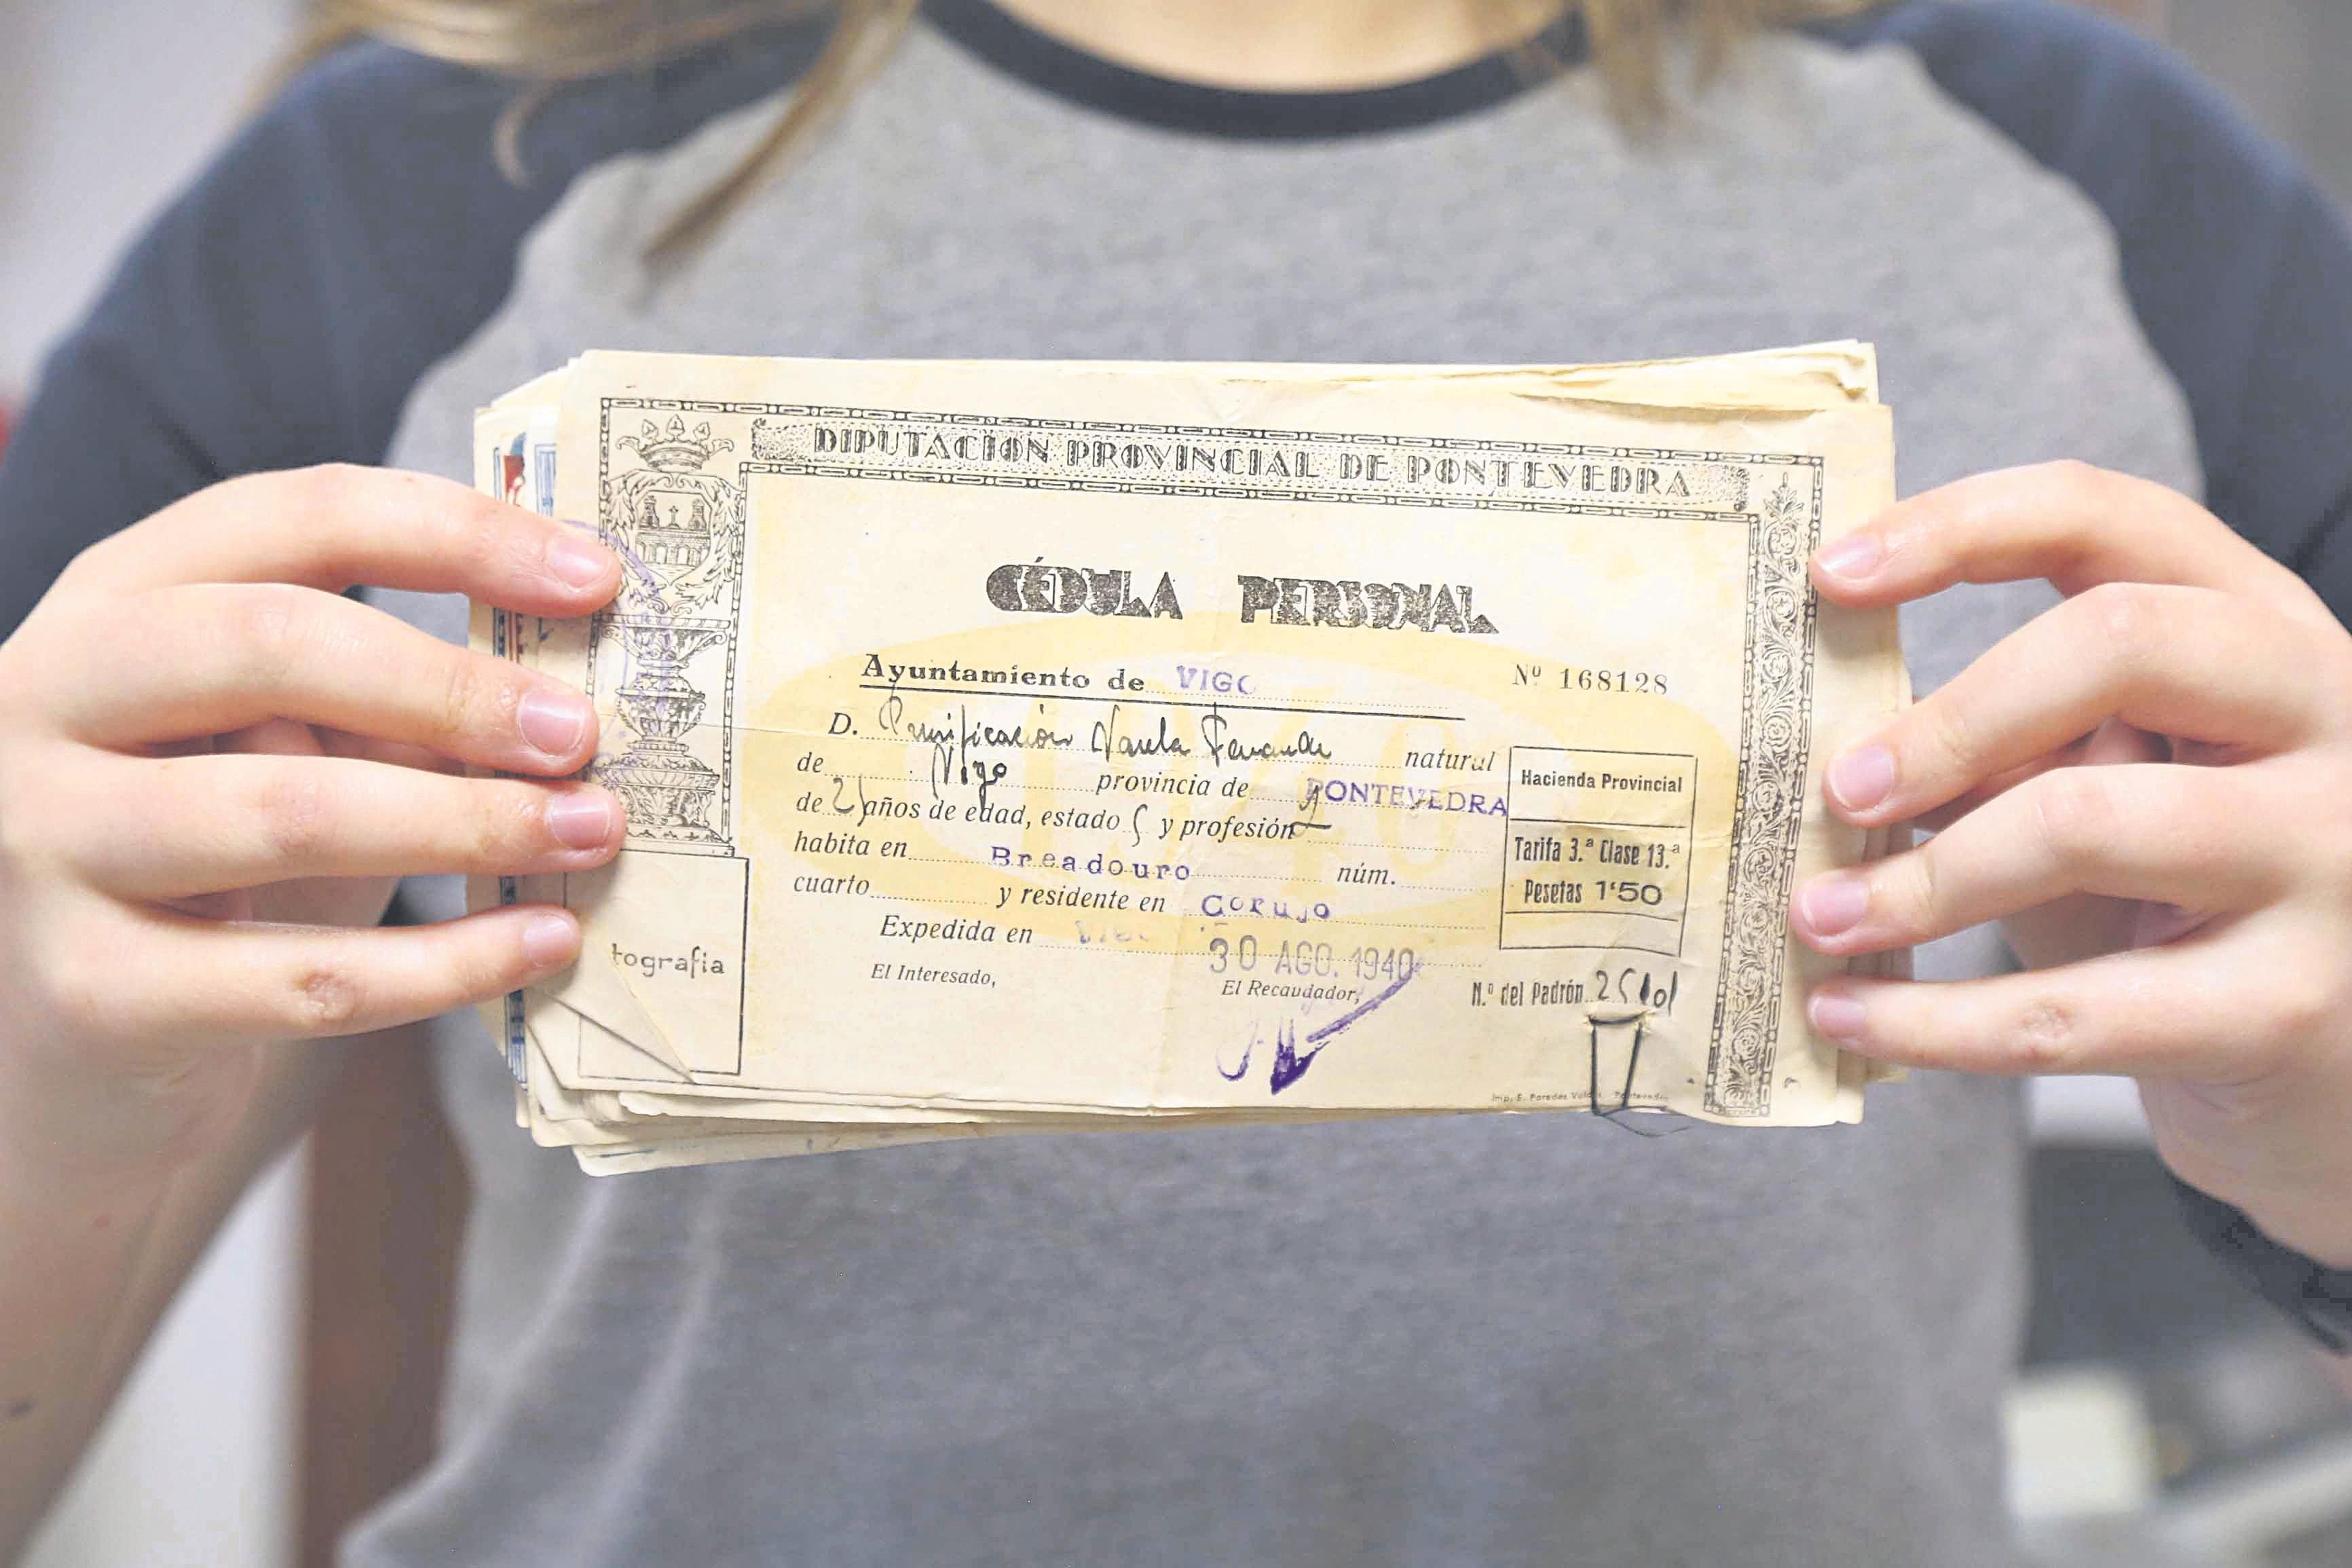 DIPUTACIÓN PROVINCIAL DE PONTEVEDRA
CÉDULA PERSONAL
Ayuntamiento de VIGO
Nº 168128
D. Purificación Varela natural
de Vigo provincia de PONTEVEDRA
de 21 años de edad, estado S y profesión
habita en Breadouro núm.
cuarto y residente en Corujo
Expedida en 30 AGO. 1940
El Interesado,
El Recaudador,
Hacienda Provincial
Tarifa 3.ª Clase 13.ª
Pesetas 1'50
N.º del Padrón
tografia
Imp. E. Paredes